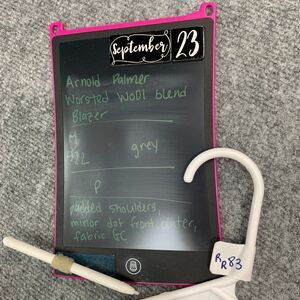 September 23
Arnold Palmer
Worsted Wool blend
Blazer
M
42
grey
P
padded shoulders,
minor dot front center,
fabric GC
RR83